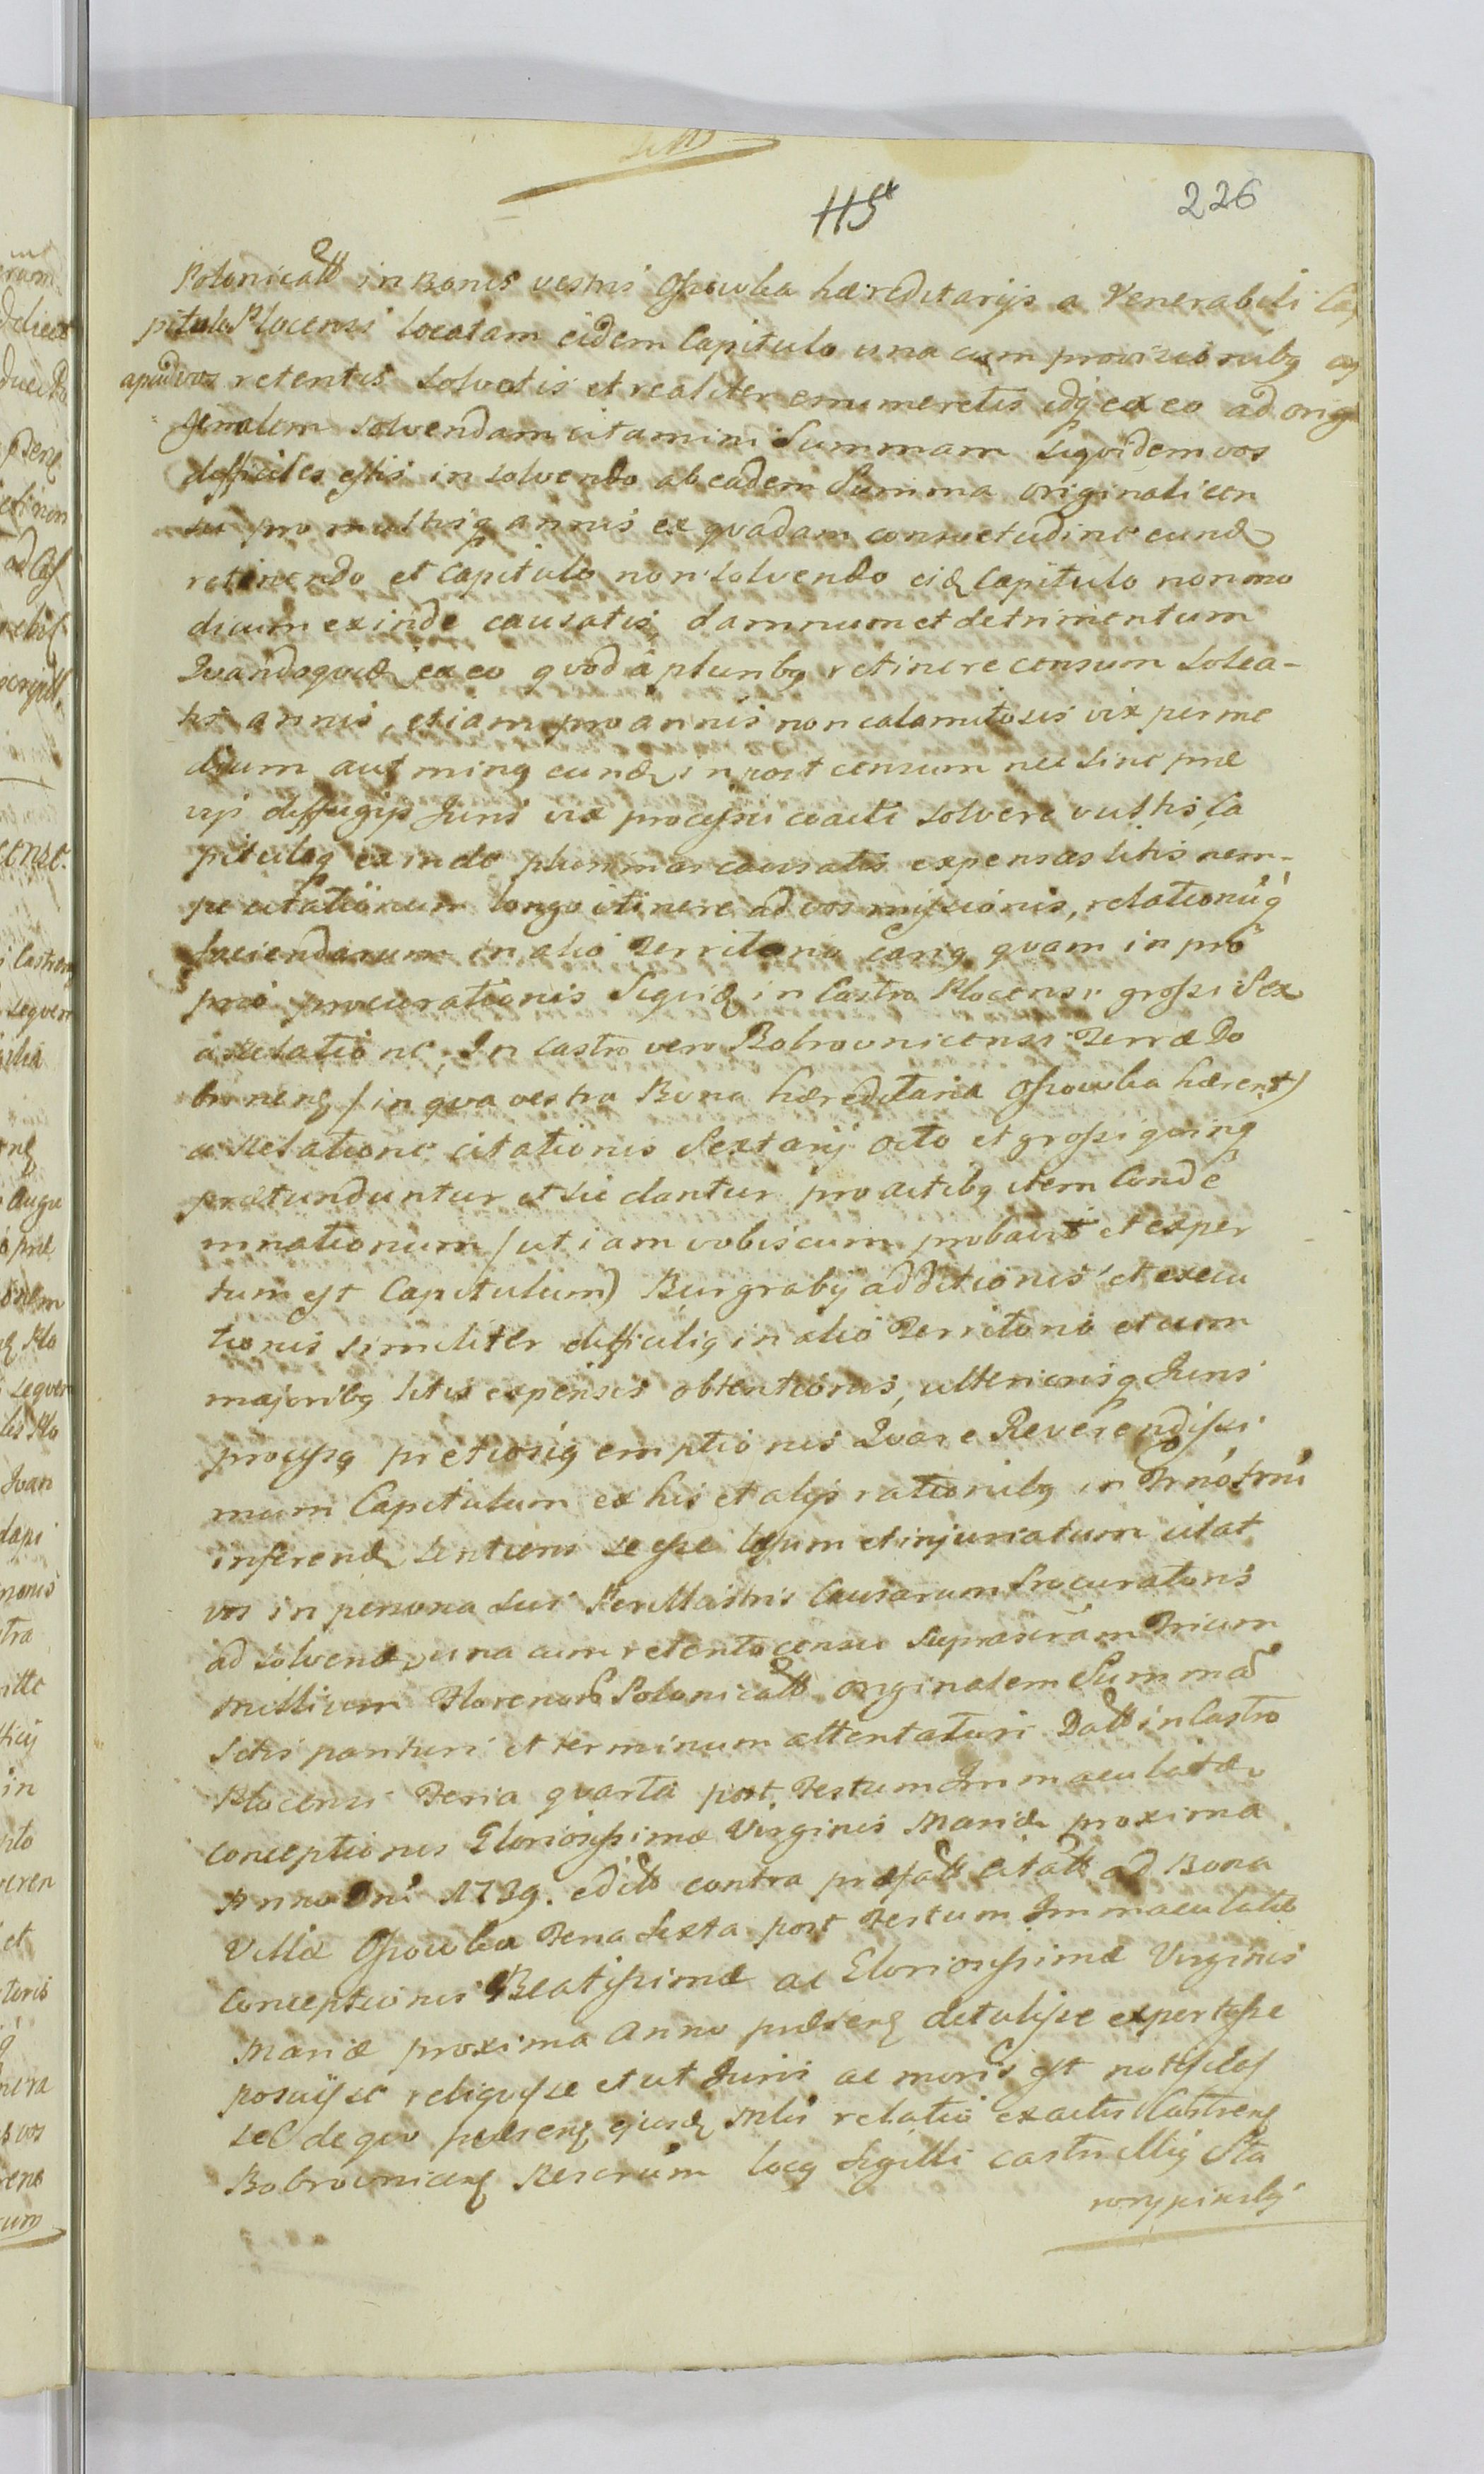 115
226
Polonicall in Bonis vestris Ossowka hæreditarijs a Venerabili Ca
pitulo Plocensi locatam eidem Capitulo una cum provisionibq
apud vos retentis solvatis et realiter enumeretis idq ex eo ad origi
ginalem solvendam citamini Summam siqvidem vos
difficiles estis in solvendo ab eadem Summa originali cen
su pro multisq annis ex qvadam consvetudine eund
retinendo et Capitulo non solvendo eid Capitulo non mo
dicum exinde causatis damnum et detrimentum
Qvandoqvid ex eo qvod à pluribq retinere censum solea-
tis annis, etiam pro annis non calamitosis vix per me
dium aut minq eund in post censum nec sine præ
vijs diffugijs Juris vix processu coacti solvere vultis Ca
pituloq exinde plurimas causatis expensas litis nem-
pe citationum longo itinere ad vos missionis, relationuq
faciendarum in alio Territorio cariq qvam in pro
prio procurationis Siqvid in Castro Plocensi grossi Sex
a Relatione. In Castro vero Bobrovnicensi Terræ Do
brinens / in qva vestra Bona hæreditaria Ossowka hærent)
a Relatione citationis Sextarij octo et grossi qvinq
prætunduntur et sic dantur pro actibq item Conde
mnationum / ut iam vobiscum probavit et exper
tum est Capitulum) Burgrabij additionis et execu
tionis similiter difficiliq in alio Territorio et cum
majoribq litis expensis obtentionis, ulteriorisq Juris
processq pretiosiq emptionis Qvare Reverendissi
mum Capitulum ex his et alijs rationibq in Trno Trmi
inferend sentiens se esse læsum et injuriatum citat
vos in persona sui Causarum Procuratoris
ad solvend una cum retento censu Suprascram Trium
Millium Florenor Polonicall originalem Summa
Sctis parituri et terminum attentaturi Datt in Castro
Plocensi Feria qvarta post Festum Immaculatæ
Conceptionis Gloriosissimæ Virginis Mariæ proxima
Anno Dni 1739. edit contra præfatt Citatt ad Bona
Villæ Ossowka Feria Sexta post Festum Immaculatæ
Conceptionis Beatissimæ ac Gloriosissimæ Virginis
Mariæ proxima Anno præsens detulisse expertasse
posuisse reliqvisse et ut Juris ac moris est notificas
se de qvo præsens ejusd Mlis relatio ex actis Castrens
Bobrovnicens Rescrum locq Sigilli Castri